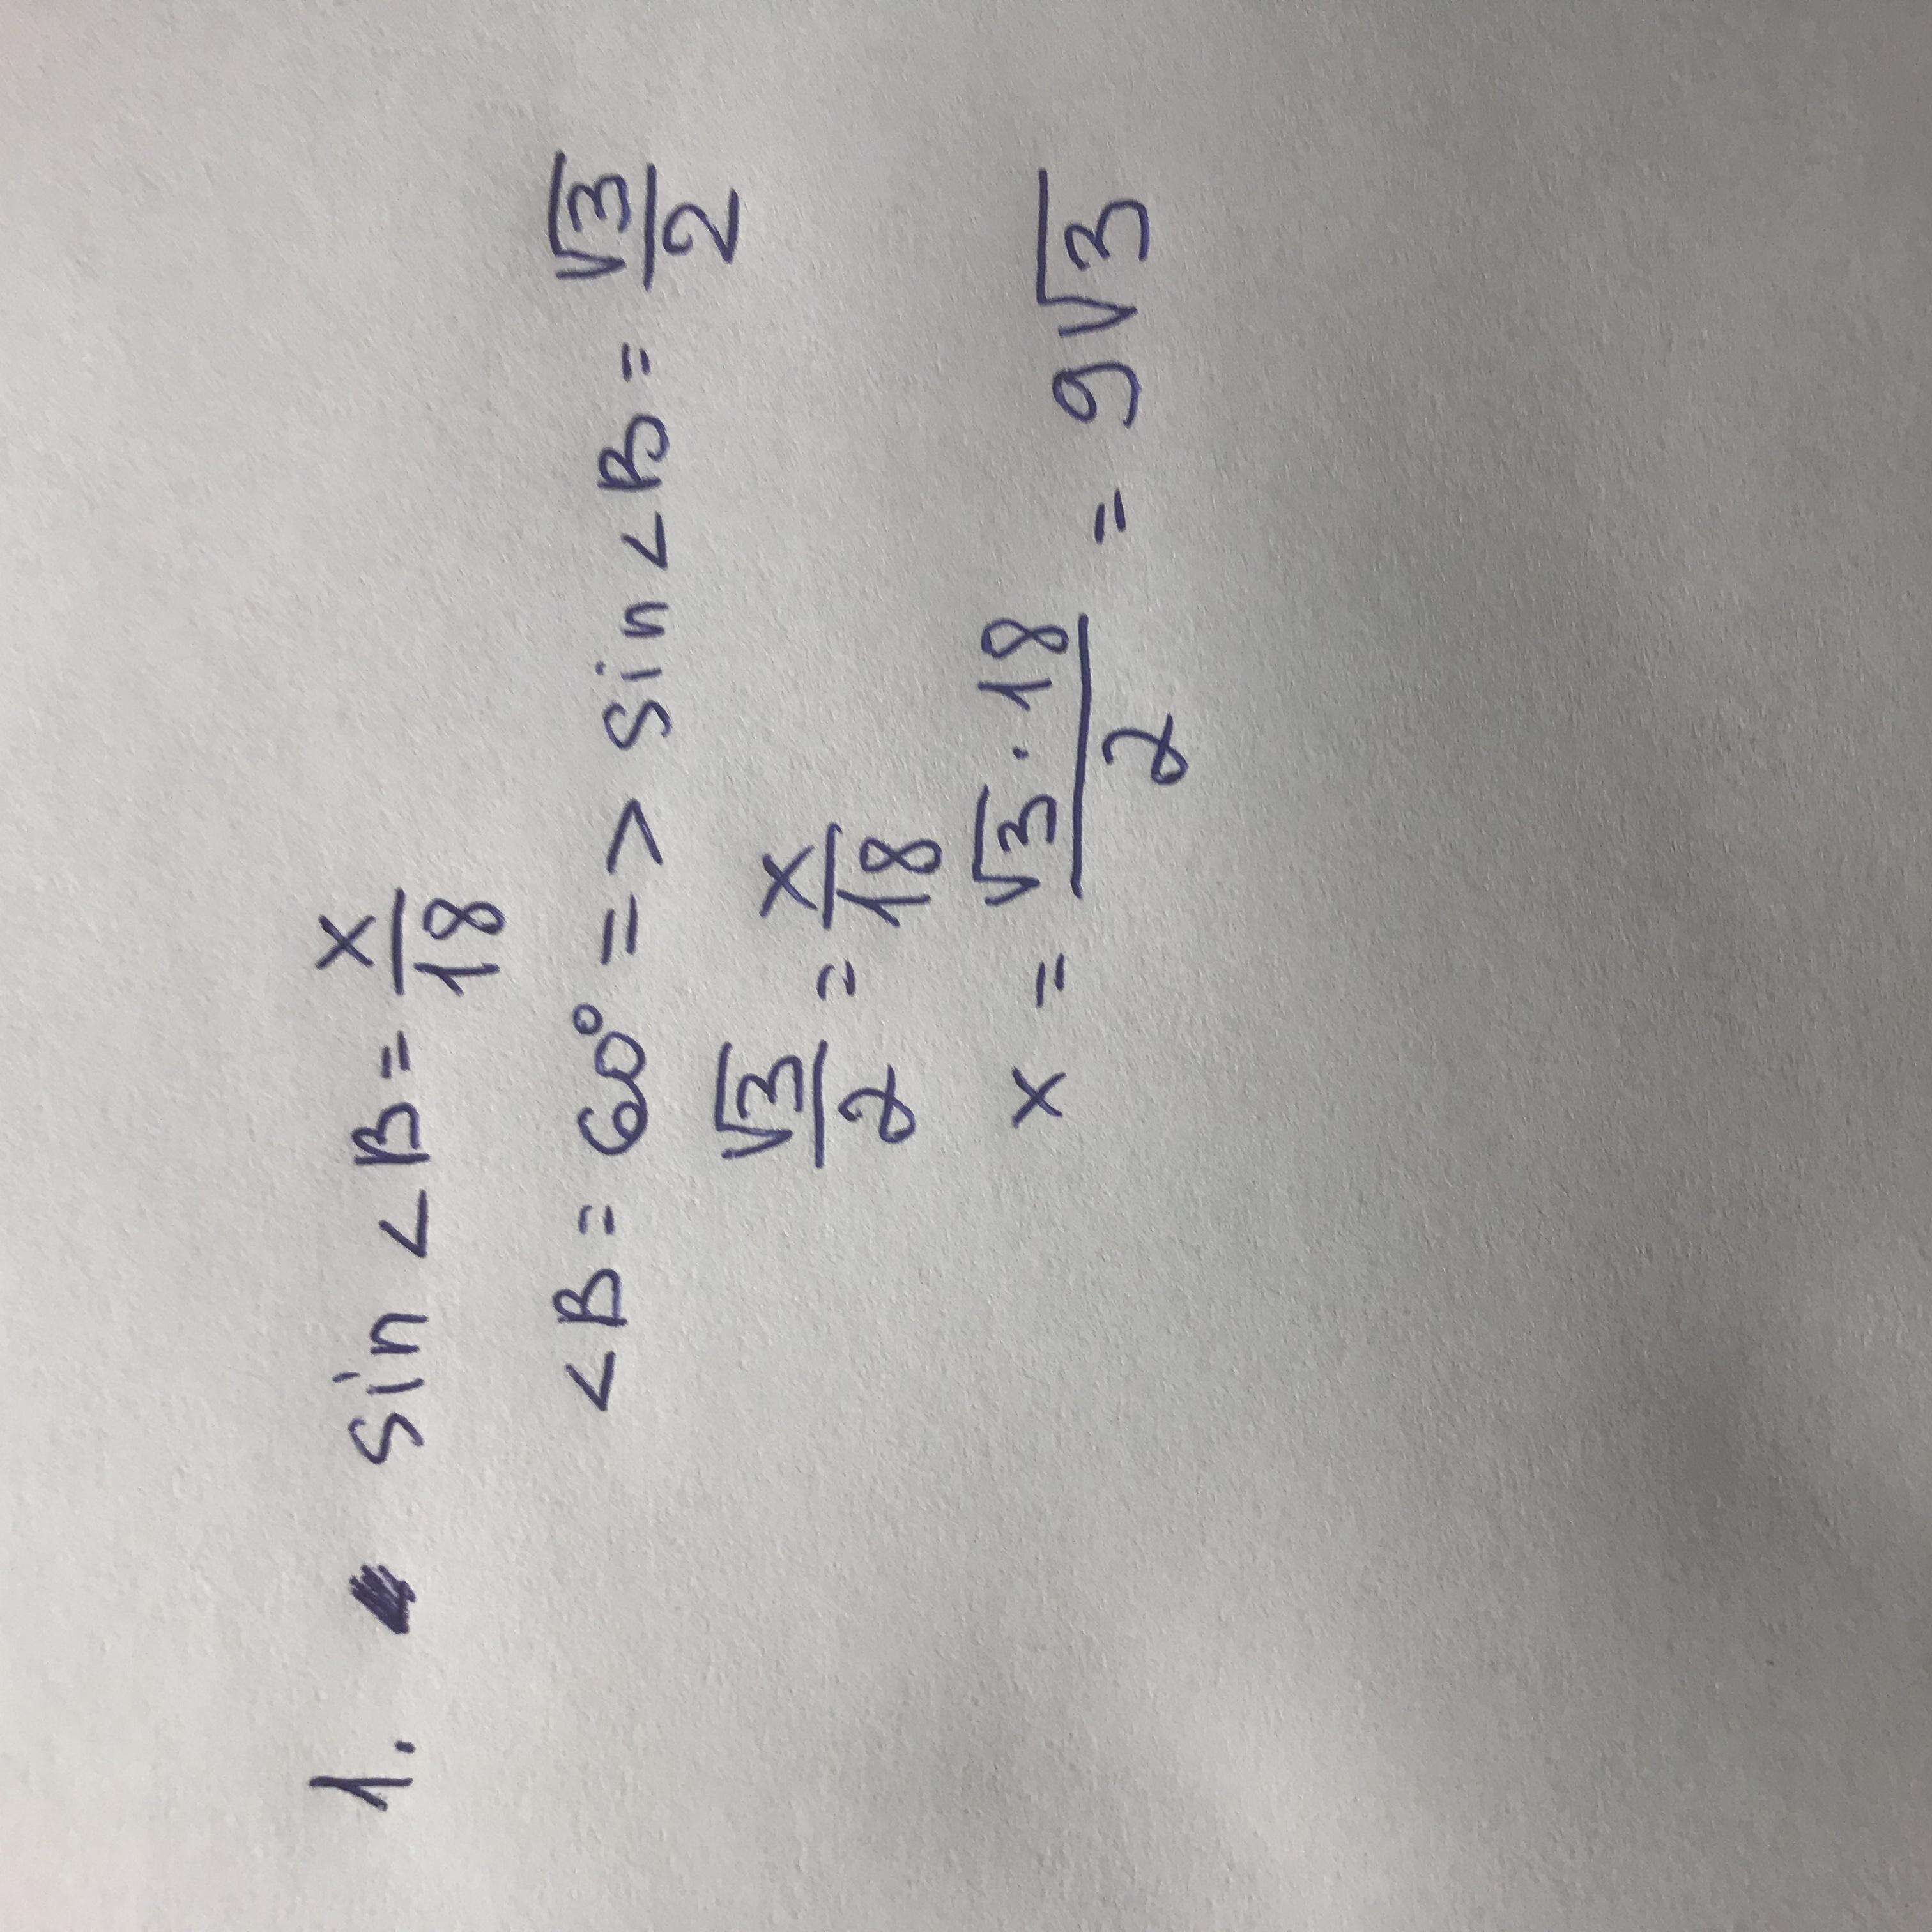 1. sin <B = x/18
<B = 60° => sin <B = √3/2
√3/2 = x/18
x = √3 · 18/2 = 9√3